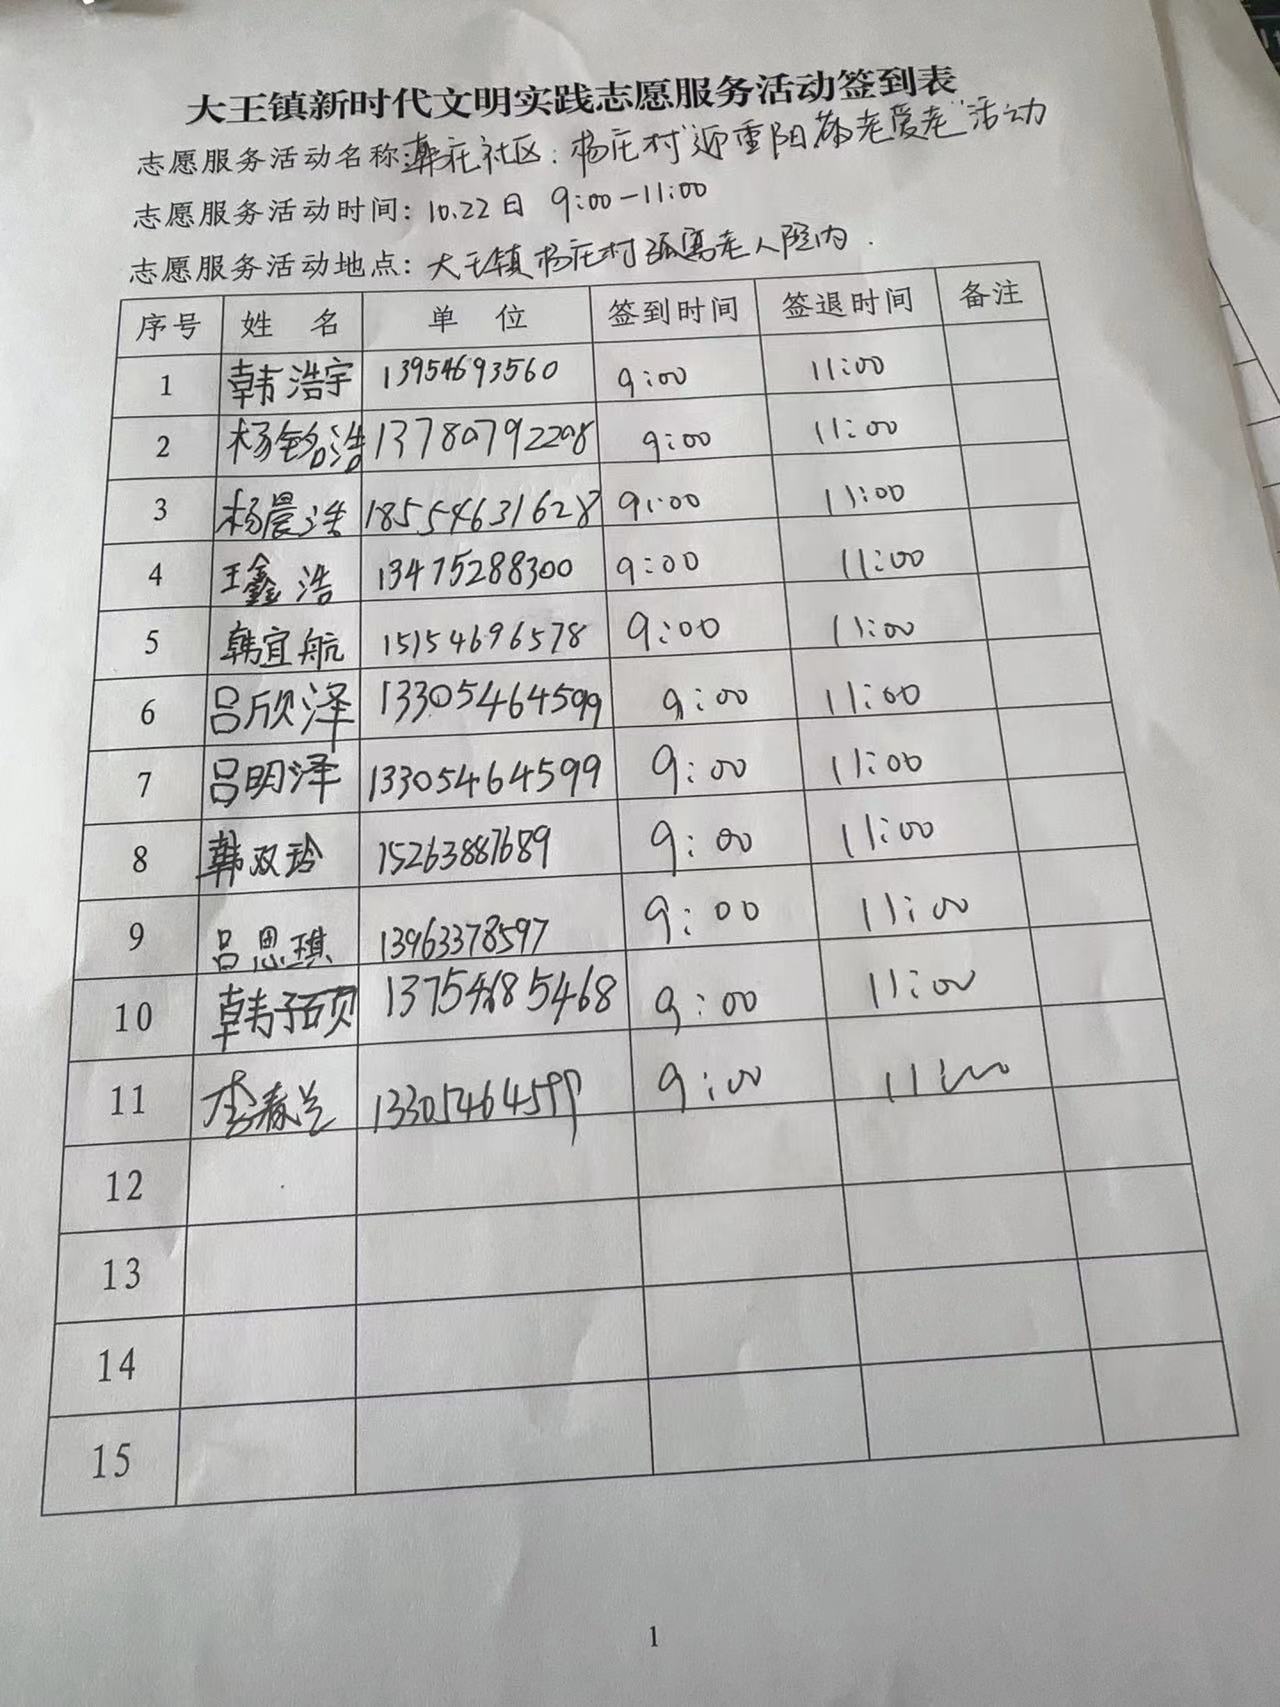 大王镇新时代文明实践志愿服务活动签到表
志愿服务活动名称:韩庄社区:杨庄村"迎重阳敬老爱老"活动
志愿服务活动时间:10.22日 9:00-11:00
志愿服务活动地点:大王镇杨庄村孤寡老人院内.
序号 姓 名 单 位 签到时间 签退时间 备注
1 韩浩宇 13954693560 9:00 11:00
2 杨铭浩 13780792208 9:00 11:00
3 杨晨浩 18554631628 9:00 11:00
4 王鑫浩 13475288300 9:00 11:00
5 韩宜航 15154696578 9:00 11:00
6 吕欣泽 13305464599 9:00 11:00
7 吕明泽 13305464599 9:00 11:00
8 韩双玲 15263887689 9:00 11:00
9 吕思琪 13963378597 9:00 11:00
10 韩子硕 13754685468 9:00 11:00
11 李春兰 13305464599 9:00 11:00
12
13
14
15
1